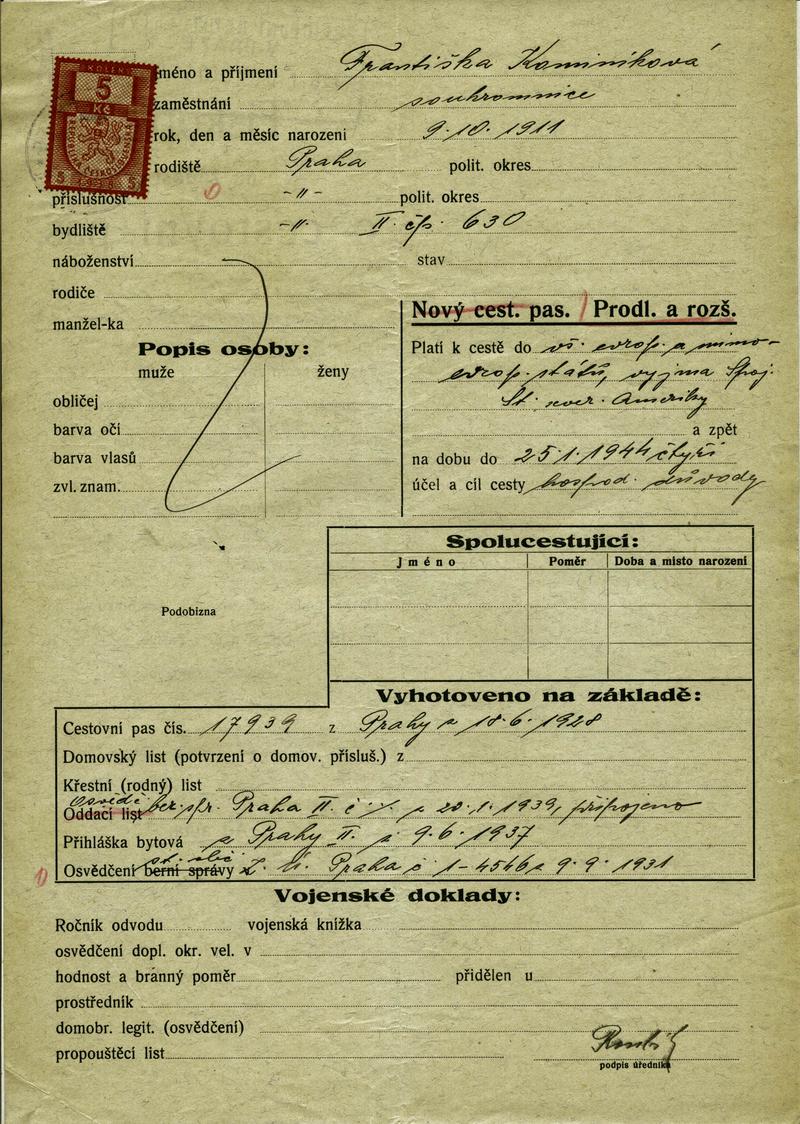 KOLEK
5
Kč
REPUBLIKA ČESKOSLOVENSKÁ
5 5
jméno a příjmení Františka Kominíková
zaměstnání soukromnice
rok, den a měsíc narození 9. 10. 1911
rodiště Praha polit. okres
příslušnost -"- polit. okres
bydliště -"- II. čp. 630
náboženství stav
rodiče
manžel-ka
Nový cest. pas. / Prodl. a rozš.
Popis osoby:
muže ženy
obličej
barva očí
barva vlasů
zvl. znam.
Platí k cestě do vš. evrop. a mimo-
evrop. států, vyjma Spoj.
St. sever. Ameriky
a zpět
na dobu do 25.1.1944 čtyři
účel a cíl cesty hospod. důvody
Spolucestující:
Jméno Poměr Doba a místo narození
Podobizna
Vyhotoveno na základě:
Cestovní pas čís. 17939 z Prahy z 18.6.1928
Domovský list (potvrzení o domov. přísluš.) z
Křestní (rodný) list
Osvědč.
Oddací list ber. spr. Praha II. č. ·/. z 20.1.1939, připojeno
Přihláška bytová z Prahy II. z 9.6.1937
st. obč.
Osvědčení berní správy Z. ú. Praha č 1-4546 z 9.9.1931
Vojenské doklady:
Ročník odvodu vojenská knížka
osvědčení dopl. okr. vel. v
hodnost a branný poměr přidělen u
prostředník
domobr. legit. (osvědčení)
propouštěcí list
podpis úředníka